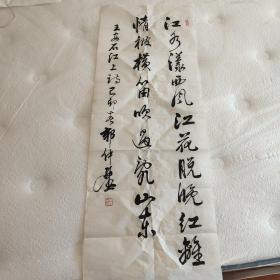 江水漾西风江花脱晚红離
情被横笛吹过乱山东
王安石江上诗己卯春郝仲